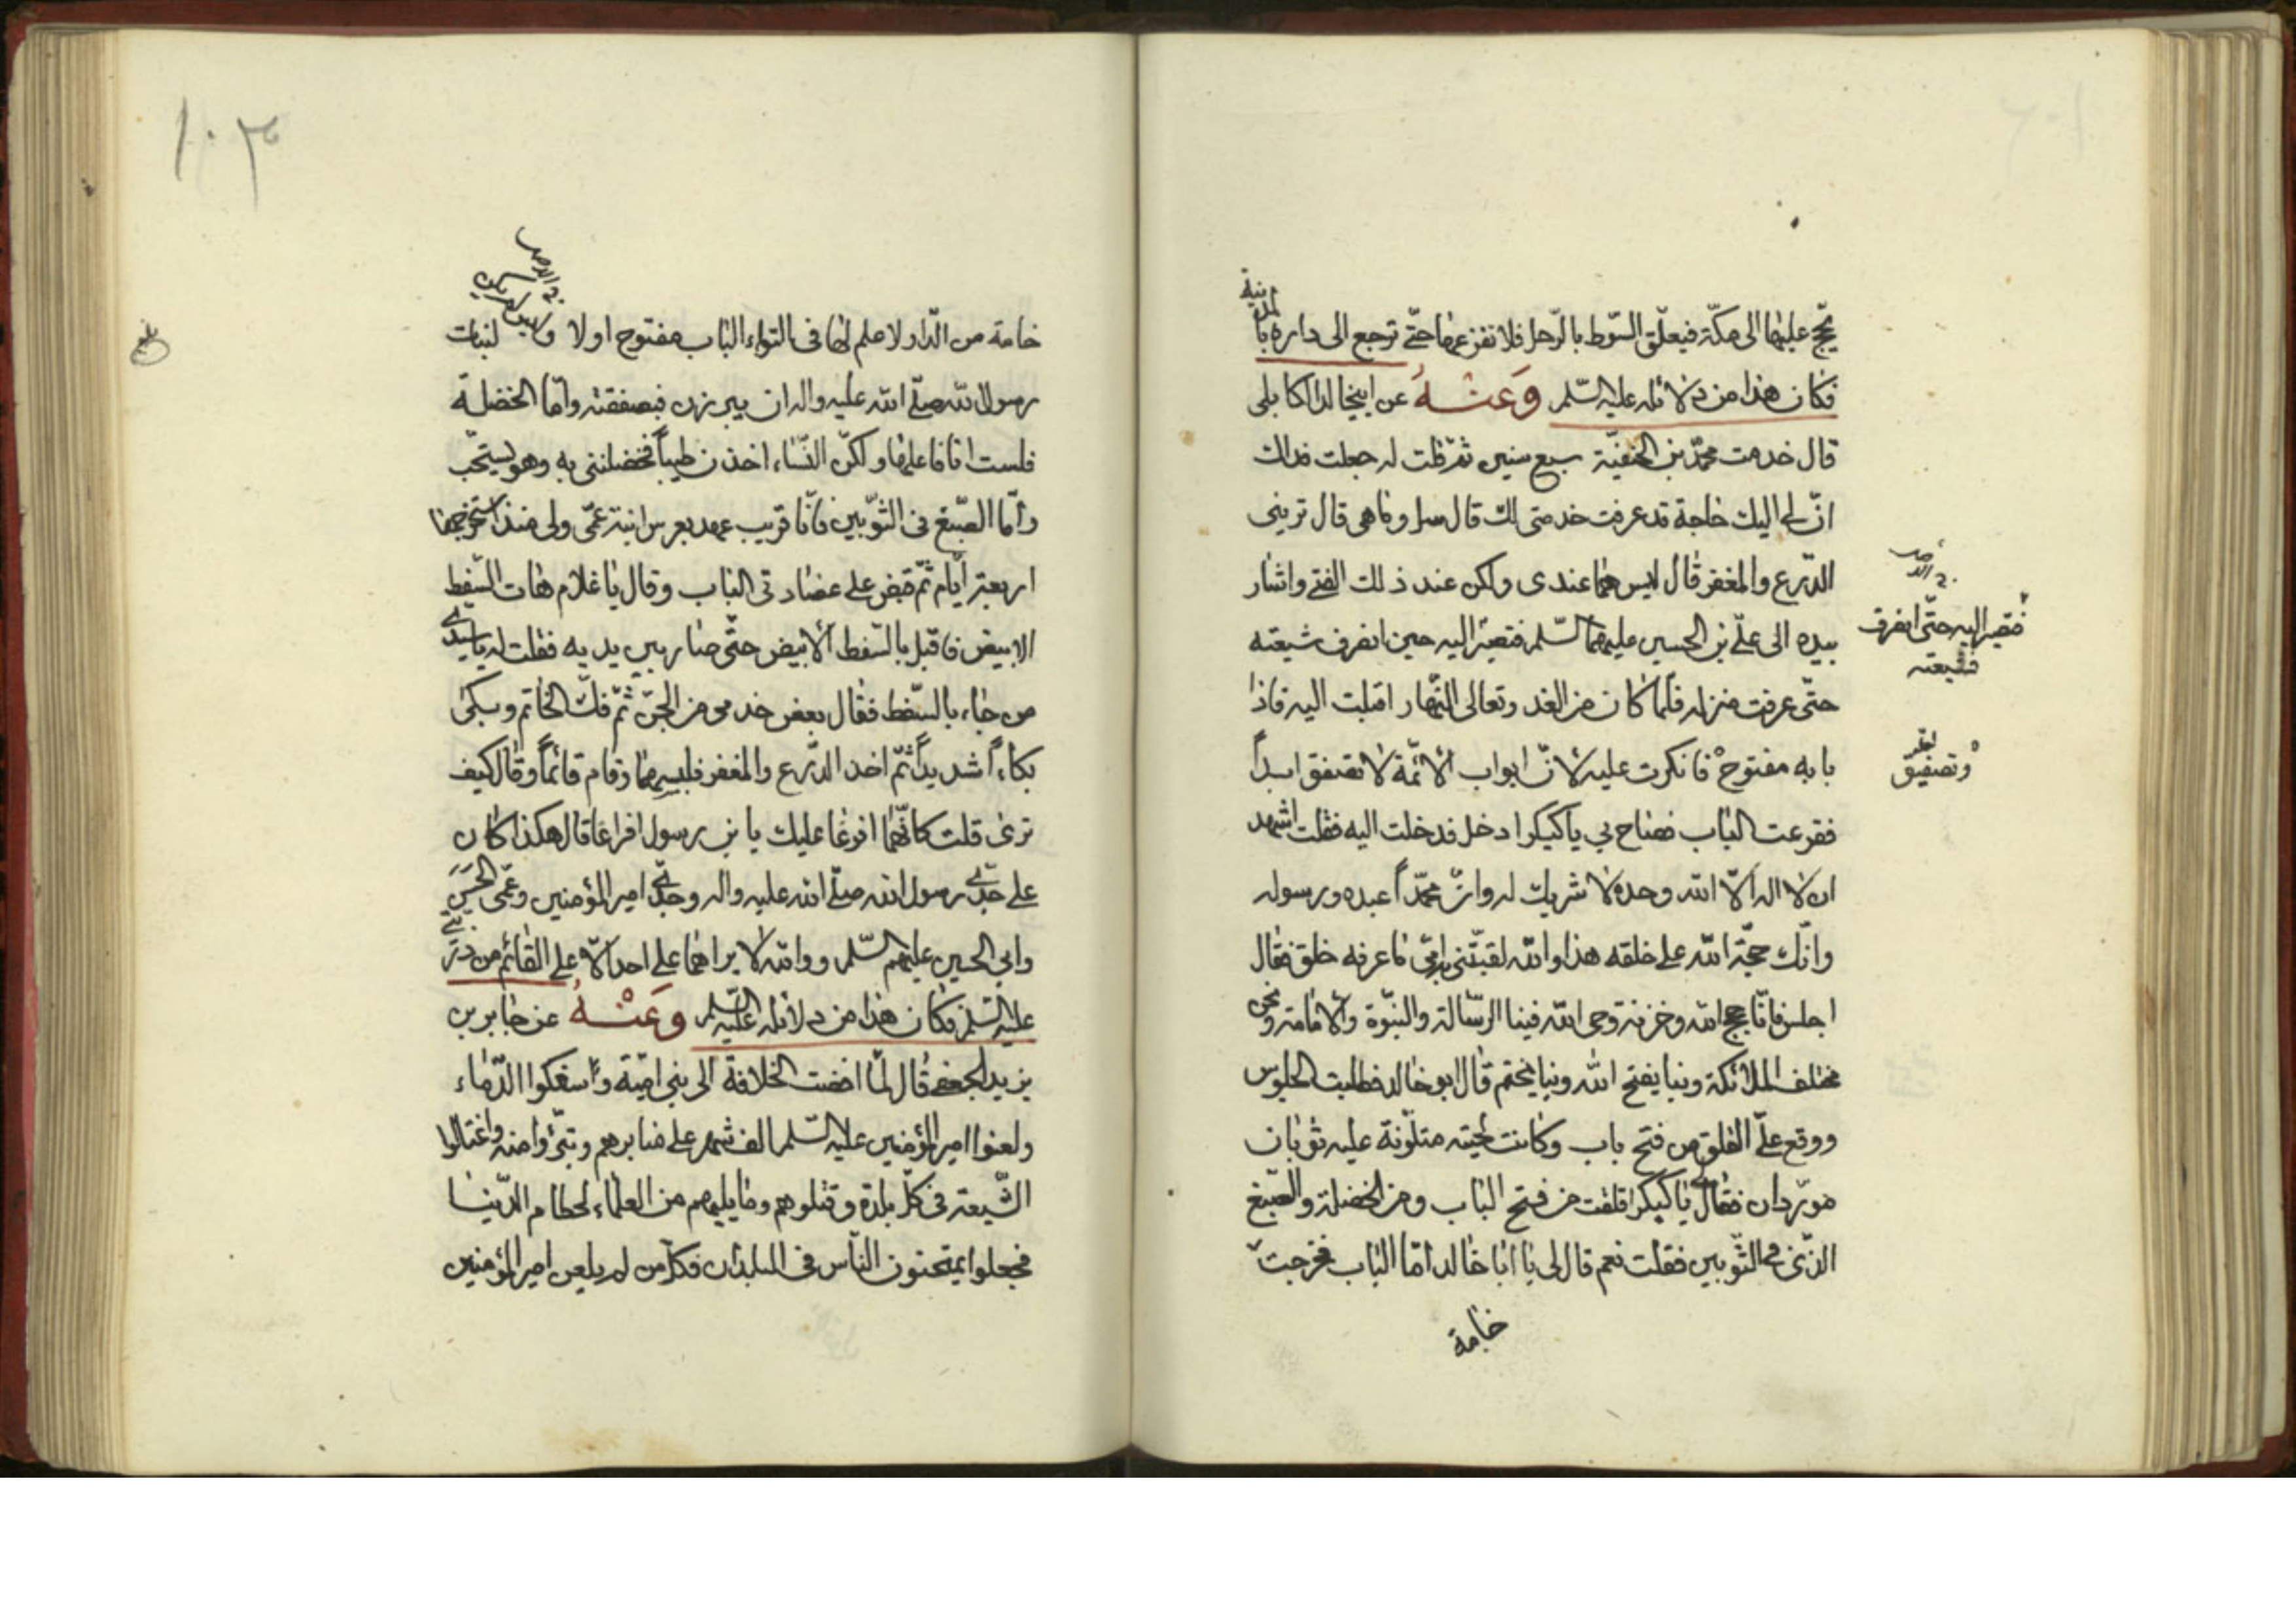 يحجّ عليها الى مكّة فيعلّق السّوط بالرّحل فلا تفزعها حتّى ترجع الى داره بالمدينة
فكان هذا من دلائله عليه السّلم وَعَنْهُ عن ابيخالد الكابلى
قال خدمت محمّد بن الحنفيّة سبع سنين ثمّ قلت له جعلت فداك
انّ لى اليك حاجة قد عرفت خدمتى لك قال سل وماهى قال ترينى
الدّرع والمغفر قال ليس هما عندى ولكن عند ذلك الفتى واشار
بيده الى علىّ بن الحسين عليهما السّلم فقصدت اليه حين انصرف شيعته
فقير اليه حتّى انصرف
فشيعته
حتّى عرفت منزله فلمّا كان من الغد وتعالى النّهار اقبلت اليه فاذا
بابه مفتوح فانكرت عليه لانّ ابواب الائمّة لا تصفق ابداً
وتصفيق
فقرعت الباب فصاح بي ياكنكر ادخل فدخلت اليه فقلت اشهد
ان لا اله الّا الله وحده لا شريك له وانّ محمّداً عبده ورسوله
وانّك حجّة الله على خلقه هذا والله لقبتنى به امّى ماعرفه خلق فقال
اجلس فانّا حجج الله وخزنة وحى الله فينا الرّسالة والنبّوة والامامة ونحن
مختلف الملائكة وبنا يفتح الله وبنا يختم قال ابو خالد فطلبت الجلوس
ووقع علىّ القلق من فتح باب وكانت لحيته متلوّنة عليه ثوبان
مورّدان فقال لى ياكنكر اقلقت من فتح الباب ومن الخضلة والصّبغ
الذّى فى الثّوبين فقلت نعم قال لى يا ابا خالد امّا الباب فخرجت
خامة
١٠٣
خامة من الدّار ولا علم لها فى التواء الباب مفتوح اولا و لبنات
رسول الله صلّى الله عليه واله ان يبرزن فيصفقنه وامّا الخضلة
فلست انا فاعلها ولكنّ النّساء اخذن طيباً فخضلننى به وهو يستحبّ
وامّا الصّبغ فى الثّوبين فانّا قريب عهد بعرس ابنة عمّى ولى منذ استخرجها
اربعة ايّام ثمّ قبض على عضادتى الباب وقال يا غلام هات السّفط
الابيض فاقبل بالسّفط الابيض حتّى صار بين يديه فقلت له ياسيدى
من جاء بالسّفط فقال بعض خدمى من الجنّ ثمّ فكّ الخاتم وبكى
بكاءاً شديداً ثمّ اخذ الدّرع والمغفر فلبسهما وقام قائماً وقال كيف
ترى قلت كانّهما افرغا عليك يا بن رسول افراغا قال هكذا كان
على جدّى رسول الله صلّى الله عليه واله وجدّى امير المؤمنين وعمّى الحسن
وابي الحسين عليهم السّلم ووالله لا يراهما على احد الّا على القائم من ذرّيتى
عليه السّلم فكان هذا من دلائله عليه السّلم وَعَنْهُ عن جابر بن
يزيد الجعفى قال لمّا افضت الخلافة الى بنى اميّة واسفكوا الدّماء
ولعنوا امير المؤمنين عليه السّلم الف شهر على منابرهم وتبرّؤا منه واغتالوا
الشّيعة فى كلّ بلدة وقتلوهم ومايليهم من العلماء لحطام الدّنيا
فجعلوا يمتحنون النّاس فى البلدان فكلّ من لم يلعن امير المؤمنين
بلغ